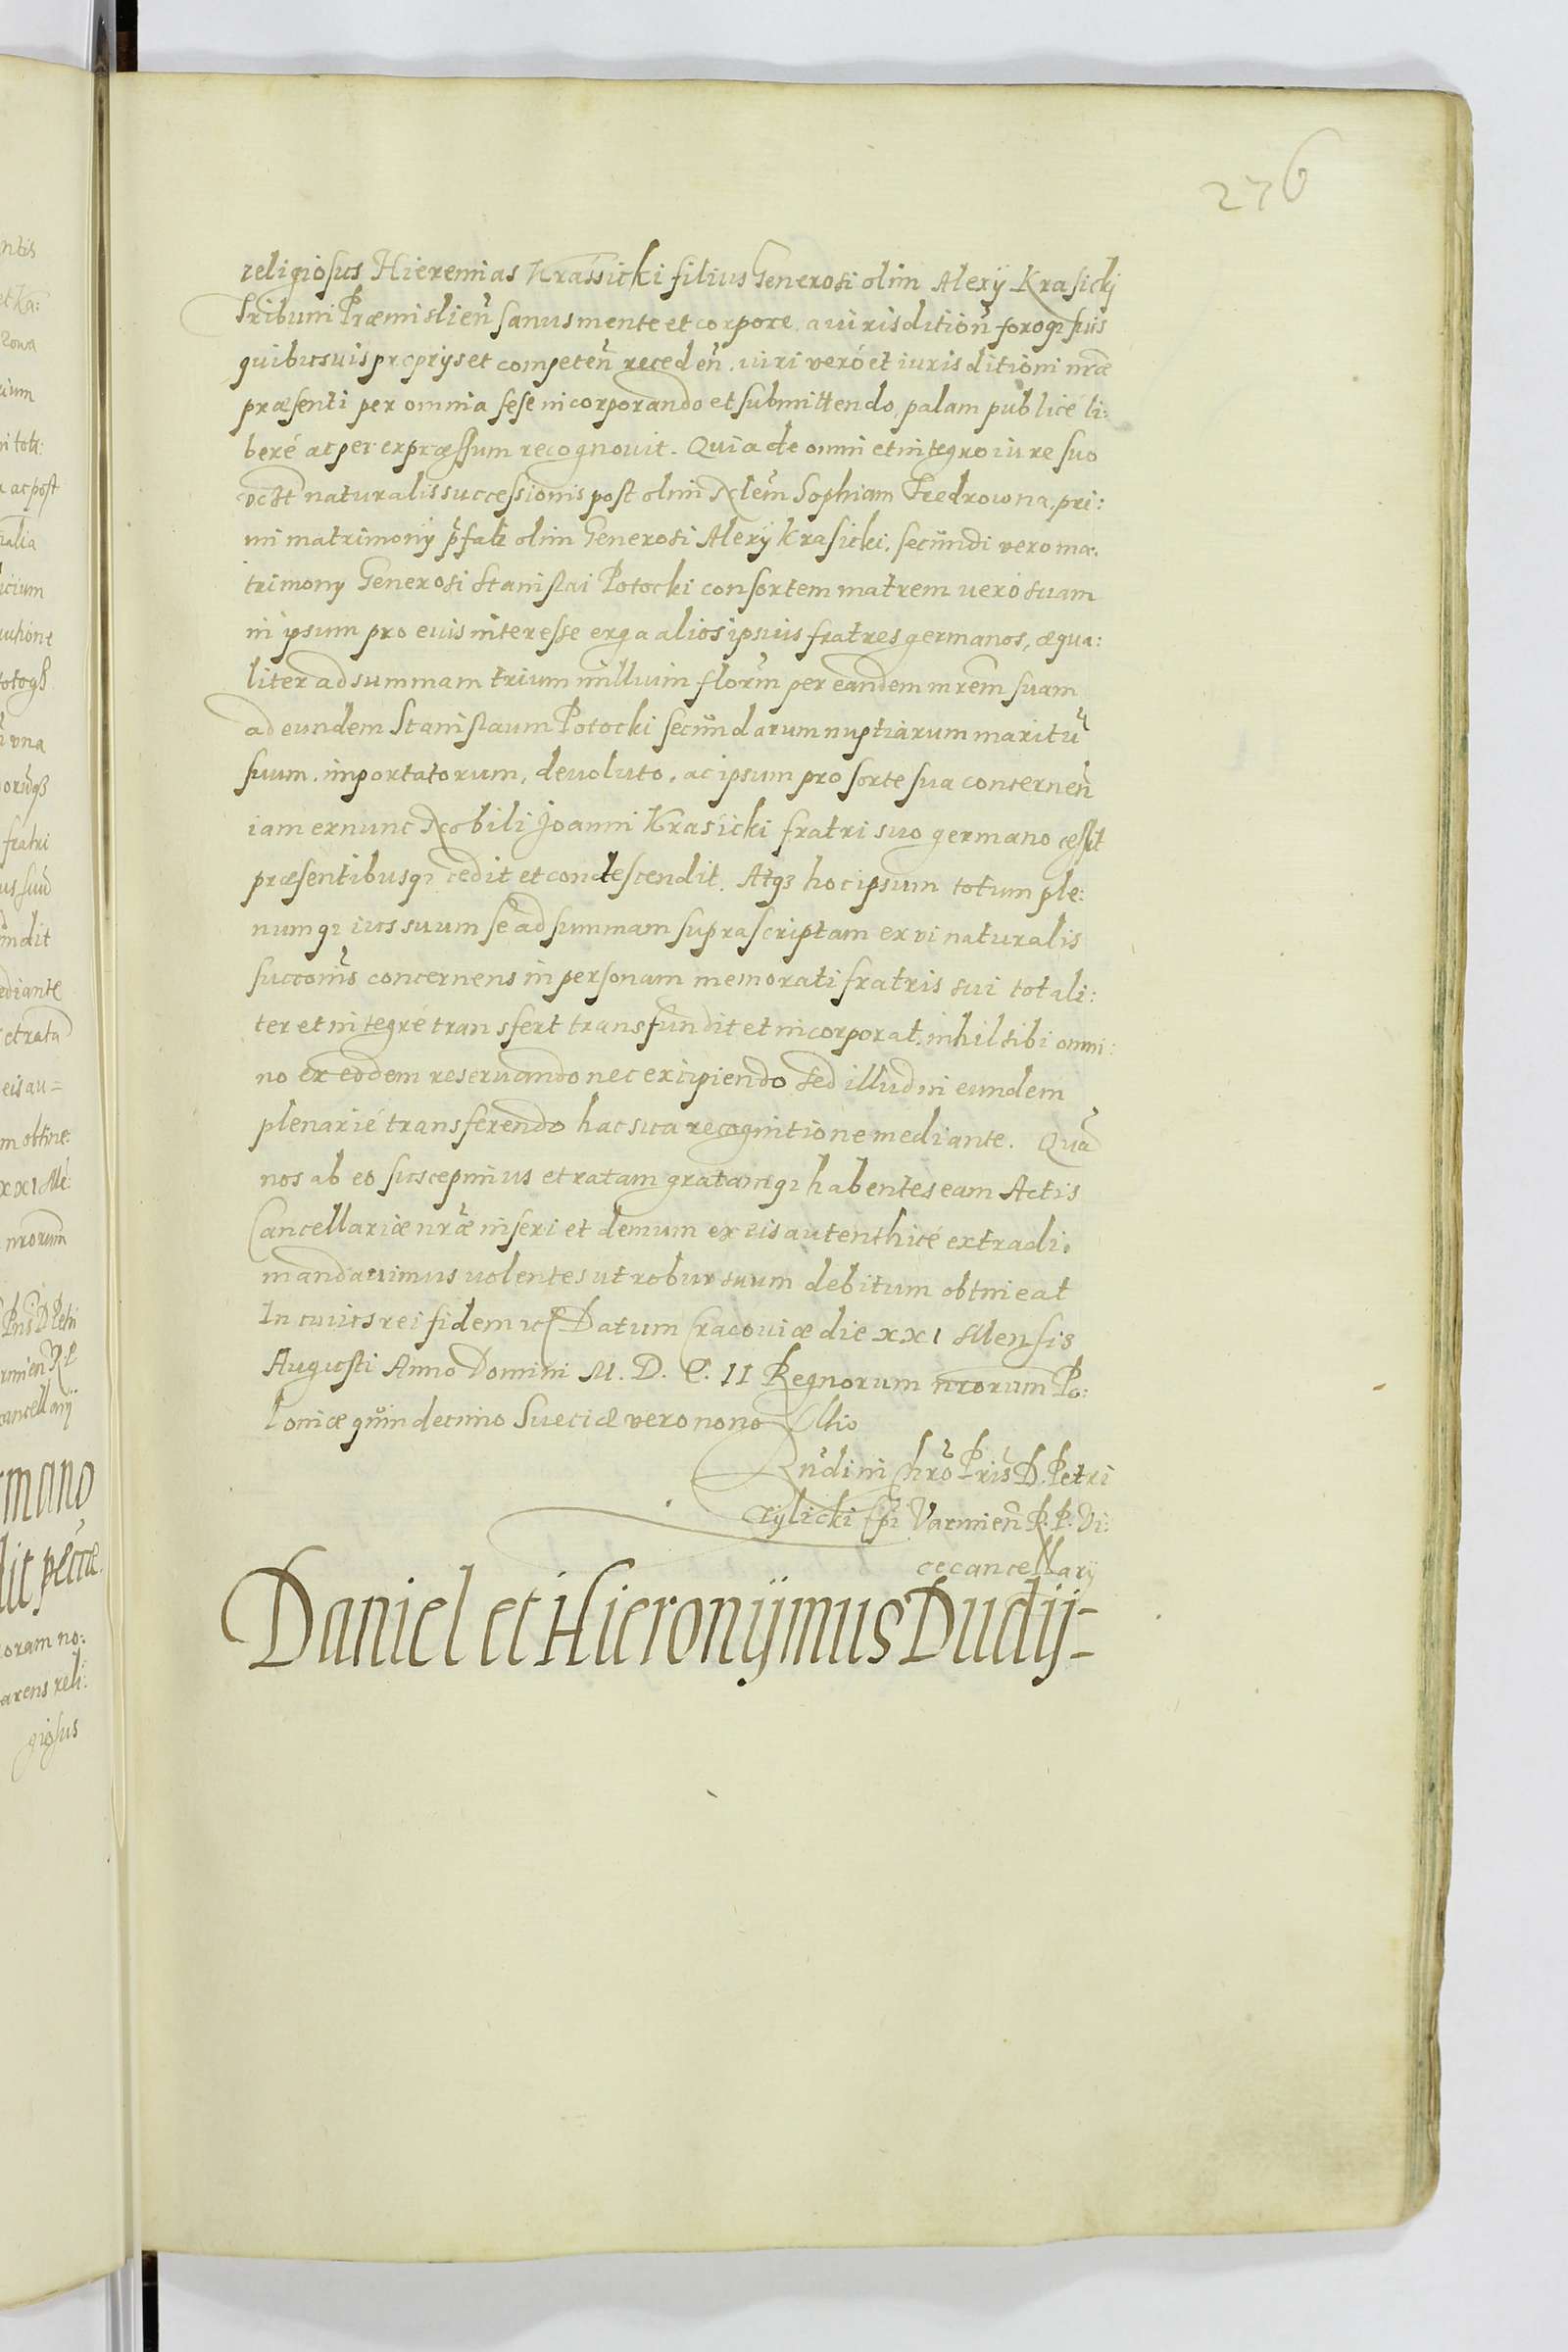 276
religiosus Hieremias Krassicki filius Generosi olim Alexÿ Krasicki
Tribuni Præmislien̄ sanus mente et corpore, a iurisdition̄ foroqꝫ suis
quibusuis proprÿs et competen̄ receden̄. iuri veró et iurisditioni nr̄æ
præsenti per omnia sese incorporando et submittendo, palam publicé li:
beré ac per expræssum recognouit. Quia de omni et integro iure suo
naturalis successionis post olim Nlem̄ Sophiam Fredrowna, pri:
mi matrimonÿ olim Generosi Alexÿ Krasicki, secundi vero ma:
trimonÿ Generosi Stanislai Potocki consortem matrem veró suam
in ipsum pro euis interesse erga alios ipsius fratres germanos, æqua:
liter ad summam trium millium florin̄ per eandem mrēm suam
ad eundem Stanislaum Potocki secundarum nuptiarum maritū
suum, importatorum, deuoluto, ac ipsum pro sorte sua concernen̄
iam ex nunc Nobili Joanni Krasicki fratri suo germano cessit
præsentibusqꝫ cedit et condescendit. Atqꝫ hoc ipsum totum ple:
numqꝫ ius suum se ad summam suprascriptam ex vi naturalis
succōnis concernens in personam memorati fratris sui totali:
ter et integré transfert transfundit et incorporat, nihil sibi omni:
no ex eodem reseruando nec excipiendo sed illud in eundem
plenarié transferendo hac sua recognitione mediante. Quā
nos ab eo suscepimus et ratam gratamqꝫ habentes eam Actis
Cancellariæ nr̄æ inseri et demum ex eis autenthicé extradi,
mandauimus uolentes ut robur suum debitum obtineat
In cuius rei fidem Datum Cracouiæ die XXI Mensis
Augusti Anno Domini M. D. C. II Regnorum nrorum Po:
loniæ quindecimo Sueciæ vero nono
Rn̄di in Chrō Pris D. Petri
Tylicki Epi Varmien̄ R. P. Vi:
cecancellarÿ
Daniel et Hieronÿmus Dudÿ-